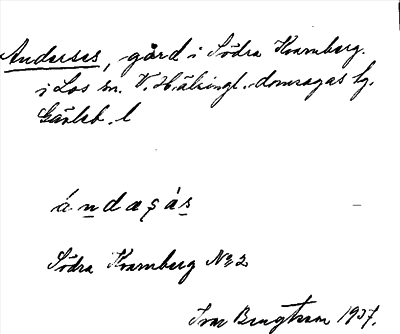 Anderses, gård i Södra Kvarnberg
i Los sn. V. Hälsingl. domsagas tg.
Gävleb. l
ándaʂás
Södra Kvarnberg No 2
Ivar Bengtsson 1937.